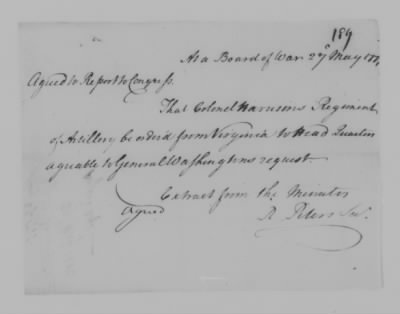 189
At a Board of War 27 May 177
Agreed to Report to Congress.
That Colonel Harrisons Regiment
of Artillery be order'd from Virginia to Head Quarters
agreable to General Washingtons request.
Extract from the Minutes
Agreed
R Peters Secy.